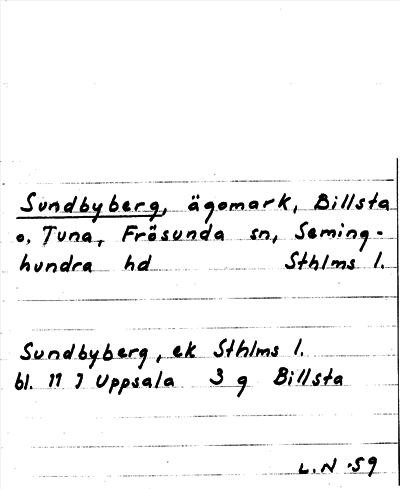 Sundbyberg, ägomark, Billsta
o, Tuna, Frösunda sn, Seming-
hundra hd Sthlms l.
Sundbyberg, ek Sthlms l.
bl. 11 I Uppsala 3 g Billsta
L.N. 59